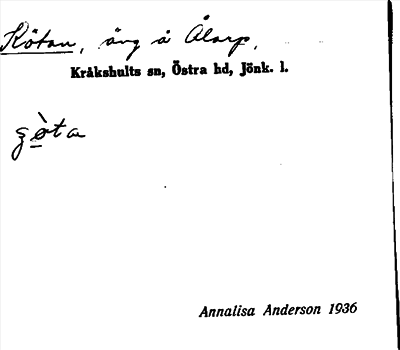 Kötan, äng å Ålarp.
Kråkshults sn, Östra hd, Jönk. l.
ʒò̱ta
Annalisa Anderson 1936